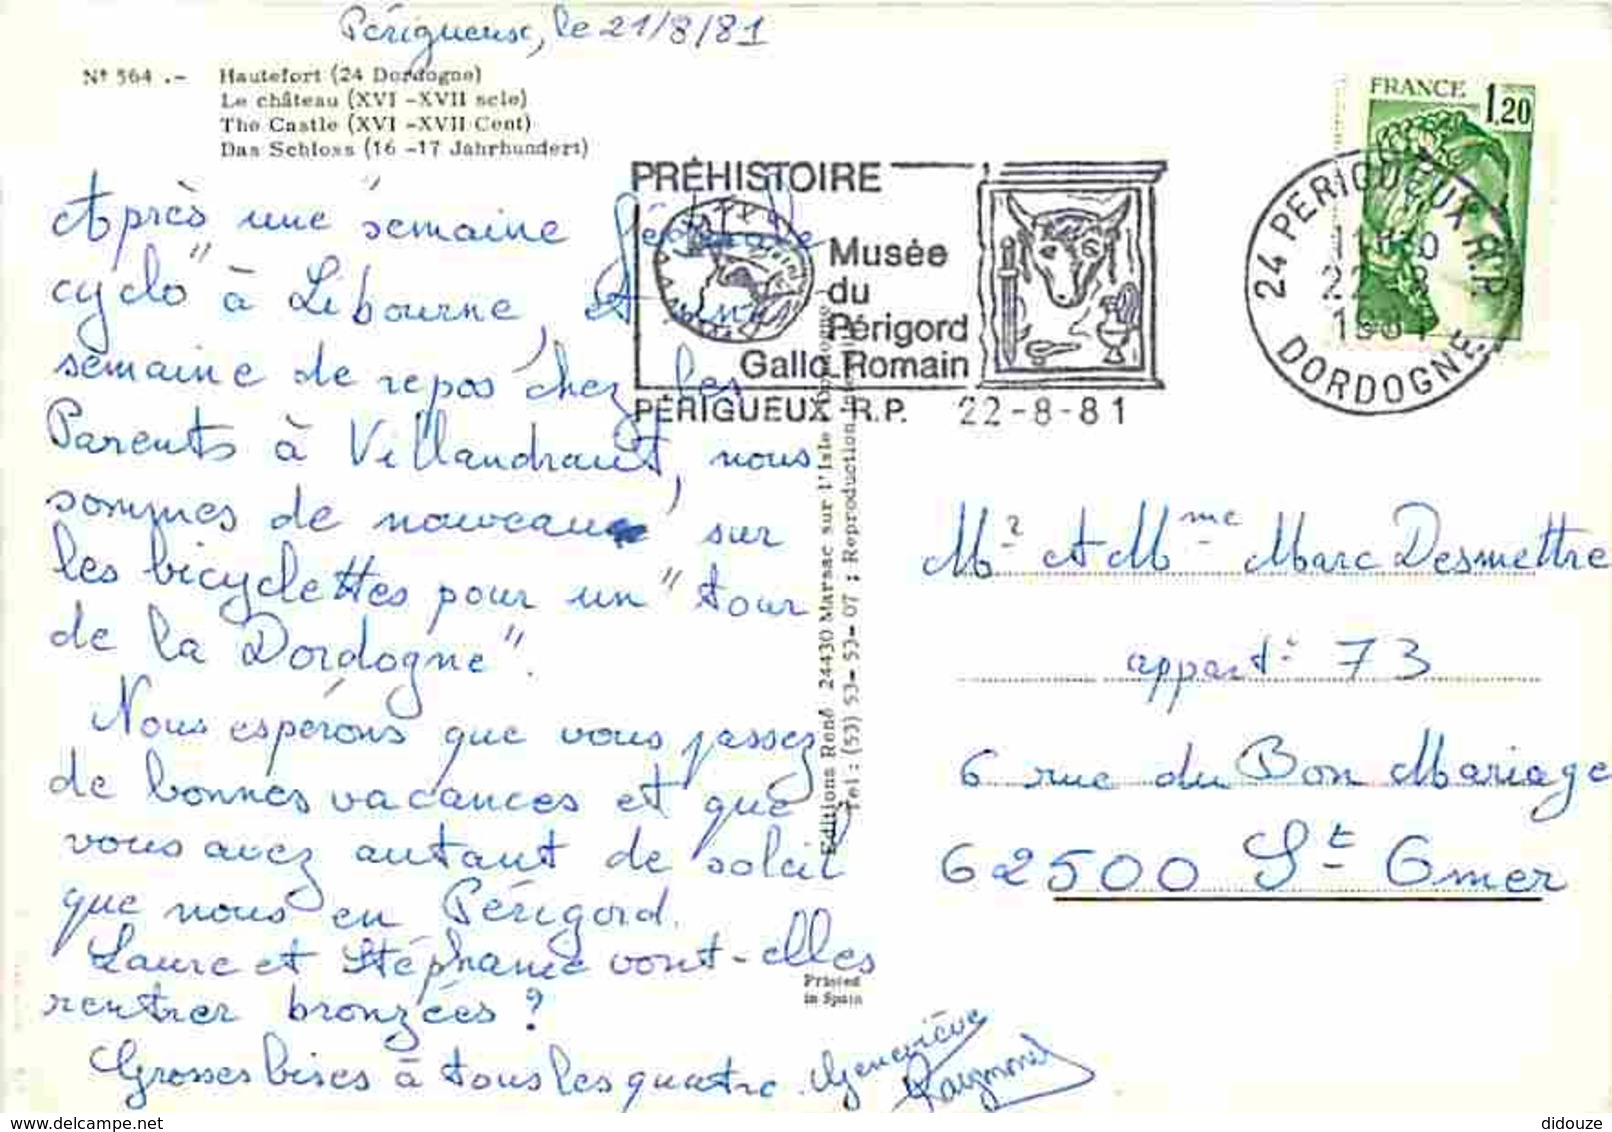 Périgueux, le 21/8/81
Nº 564 .- Hautefort (24 Dordogne)
Le château (XVI -XVII scle)
The Castle (XVI -XVII Cent)
Das Schloss (16 -17 Jahrhundert)
Après une "semaine fédérale
cyclo" à Libourne, et une
semaine de repos chez les
Parents à Villandraut, nous
sommes de nouveau sur
les bicyclettes pour un "tour
de la Dordogne".
Nous espérons que vous passez
de bonnes vacances et que
vous avez autant de soleil
que nous en Périgord.
Laure et Stéphanie vont-elles
rentrer bronzées ?
Grosses bises à tous les quatre.
Geneviève
Raymond
Editions René 24430 Marsac sur l'Isle
Tel : (53) 53-53-07 : Reproduction
Printed
in Spain
PRÉHISTOIRE
Musée
du
Périgord
Gallo-Romain
PÉRIGUEUX R.P. 22-8-81
FRANCE 1,20
24 PERIGUEUX R.P.
22-8
1981
DORDOGNE
Mr et Mme Marc Desmettre
appart: 73
6 rue du Bon Mariage
62500 St Omer
didouze